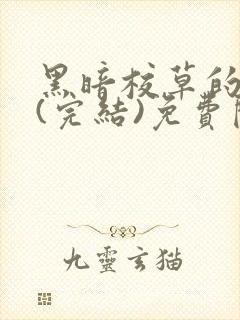 黑暗校草的
(完結)免費
九靈玄貓